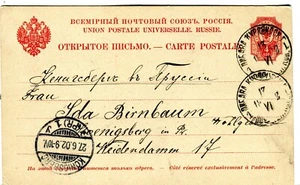 ВСЕМІРНЫЙ ПОЧТОВЫЙ СОЮЗЪ. РОССІЯ.
UNION POSTALE UNIVERSELLE. RUSSIE.
ОТКРЫТОЕ ПИСЬМО. — CARTE POSTALE
Кенигсбергъ въ Пруссіи
Frau
Ida Birnbaum
Koenigsberg in Pr.
Weidendamm 17
27.6.02.
Côté réservé exclusivement à l'adresse.